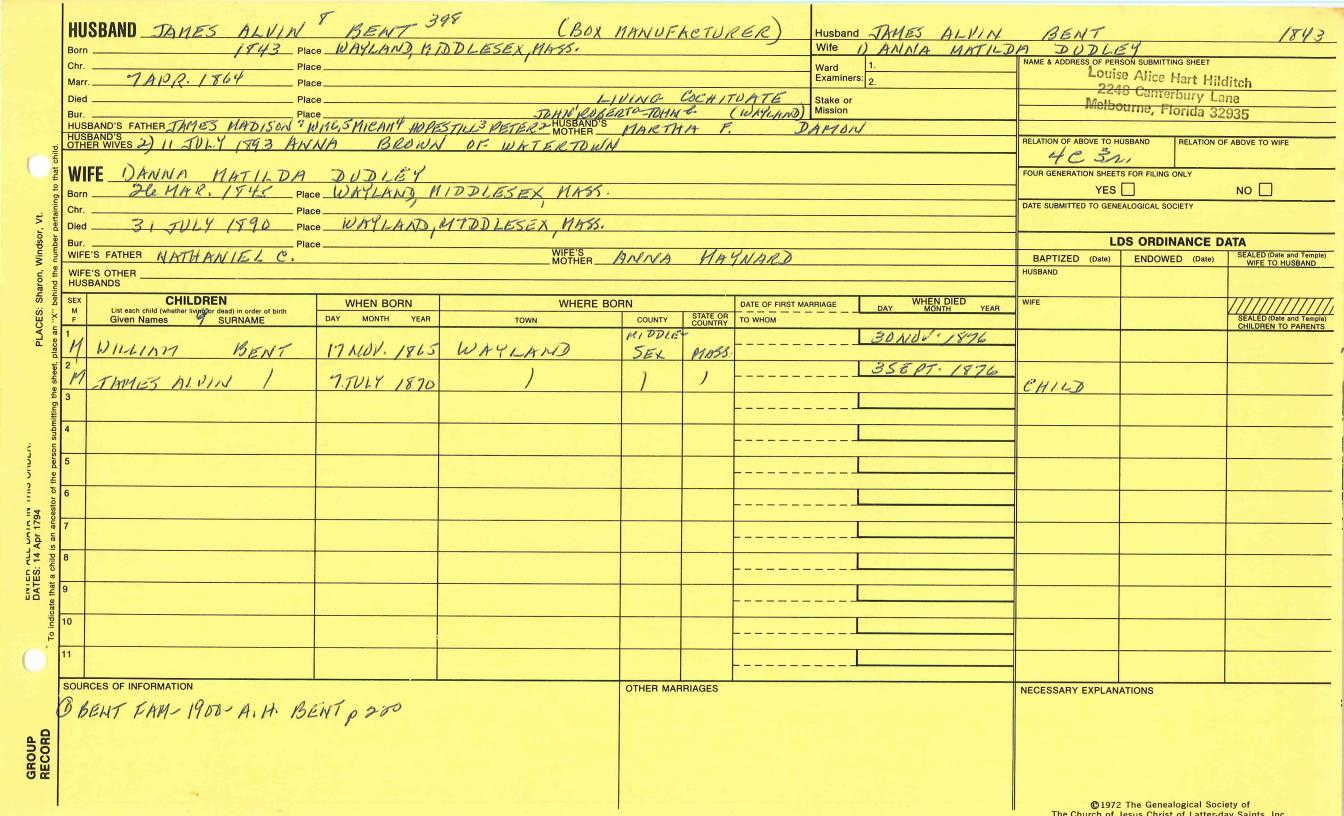 HUSBAND JAMES ALVIN 8 BENT 398 (BOX MANUFACTURER)
Born 1843 Place WAYLAND, MIDDLESEX, MASS.
Chr. Place
Marr. 7 APR. 1864 Place
Died Place LIVING COCHITUATE
Bur. Place JOHN ROBERT JOHN (WAYLAND)
HUSBAND'S FATHER JAMES MADISON 7 WM 6,5 MICAH 4 HOPESTILL 3 PETER 2 HUSBAND'S MOTHER MARTHA F. DAMON
HUSBAND'S OTHER WIVES 2) 11 JULY 1893 ANNA BROWN OF WATERTOWN
WIFE 1) ANNA MATILDA DUDLEY
Born 26 MAR. 1845 Place WAYLAND, MIDDLESEX, MASS.
Chr. Place
Died 31 JULY 1890 Place WAYLAND, MIDDLESEX, MASS.
Bur. Place
WIFE'S FATHER NATHANIEL C. WIFE'S MOTHER ANNA MAYNARD
WIFE'S OTHER HUSBANDS
Husband JAMES ALVIN BENT 1843
Wife 1) ANNA MATILDA DUDLEY
Ward Examiners: 1.
2.
Stake or Mission
NAME & ADDRESS OF PERSON SUBMITTING SHEET
Louise Alice Hart Hilditch
2248 Canterbury Lane
Melbourne, Florida 32935
RELATION OF ABOVE TO HUSBAND RELATION OF ABOVE TO WIFE
4C 3r.
FOUR GENERATION SHEETS FOR FILING ONLY
YES NO
DATE SUBMITTED TO GENEALOGICAL SOCIETY
LDS ORDINANCE DATA
BAPTIZED (Date) ENDOWED (Date) SEALED (Date and Temple) WIFE TO HUSBAND
HUSBAND
WIFE
SEALED (Date and Temple) CHILDREN TO PARENTS
SEX M F CHILDREN WHEN BORN WHERE BORN DATE OF FIRST MARRIAGE WHEN DIED
List each child (whether living or dead) in order of birth
Given Names 9 SURNAME DAY MONTH YEAR TOWN COUNTY STATE OR COUNTRY TO WHOM DAY MONTH YEAR
1 M WILLIAM BENT 17 NOV. 1865 WAYLAND MIDDLE-SEX MASS. 30 NOV. 1876
2 M JAMES ALVIN 7 JULY 1870 3 SEPT. 1876 CHILD
3
4
5
6
7
8
9
10
11
SOURCES OF INFORMATION
① BENT FAM- 1900- A.H. BENT p 200
OTHER MARRIAGES
NECESSARY EXPLANATIONS
©1972 The Genealogical Society of
The Church of Jesus Christ of Latter-day Saints, Inc.
PLACES: Sharon, Windsor, Vt.
ENTER ALL DATA IN THIS ORDER:
DATES: 14 Apr 1794
To indicate that a child is an ancestor of the person submitting the sheet, place an "X" behind the number pertaining to that child.
GROUP
RECORD